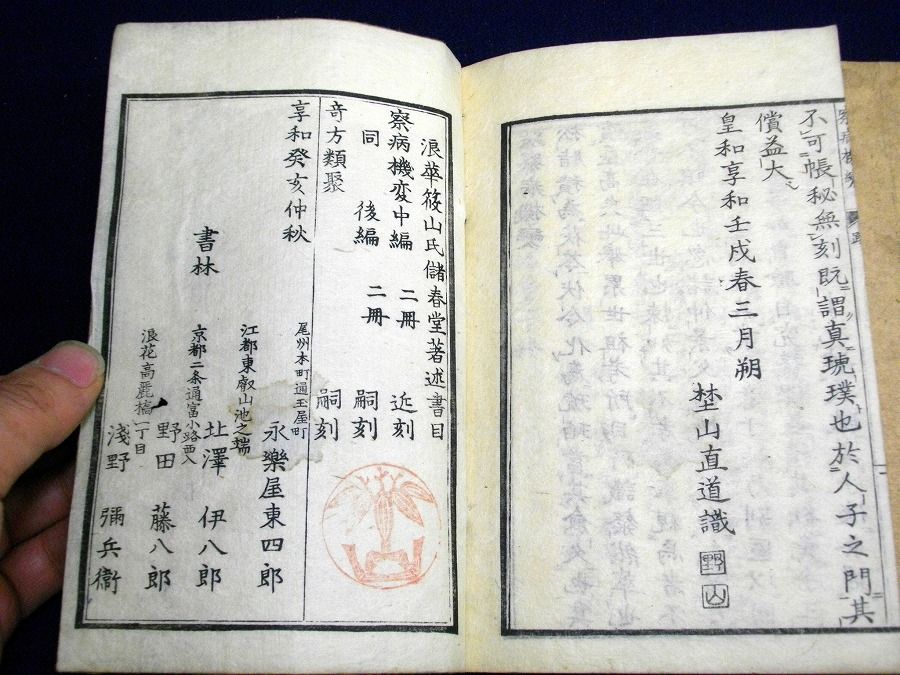 不可帳秘無刻既謂真琥璞也於人子之門其
償益大
皇和享和壬戌春三月朔
埜山直道識
野
山
浪華筱山氏儲春堂著述書目
察病機変中編 二冊 近刻
同 後編 二冊 嗣刻
竒方類聚 嗣刻
享和癸亥仲秋
書林
尾州本町通玉屋町
永樂屋東四郎
江都東叡山池之端
北澤伊八郎
京都二条通富小路西入
野田藤八郎
浪花高麗橋一丁目
淺野彌兵衞